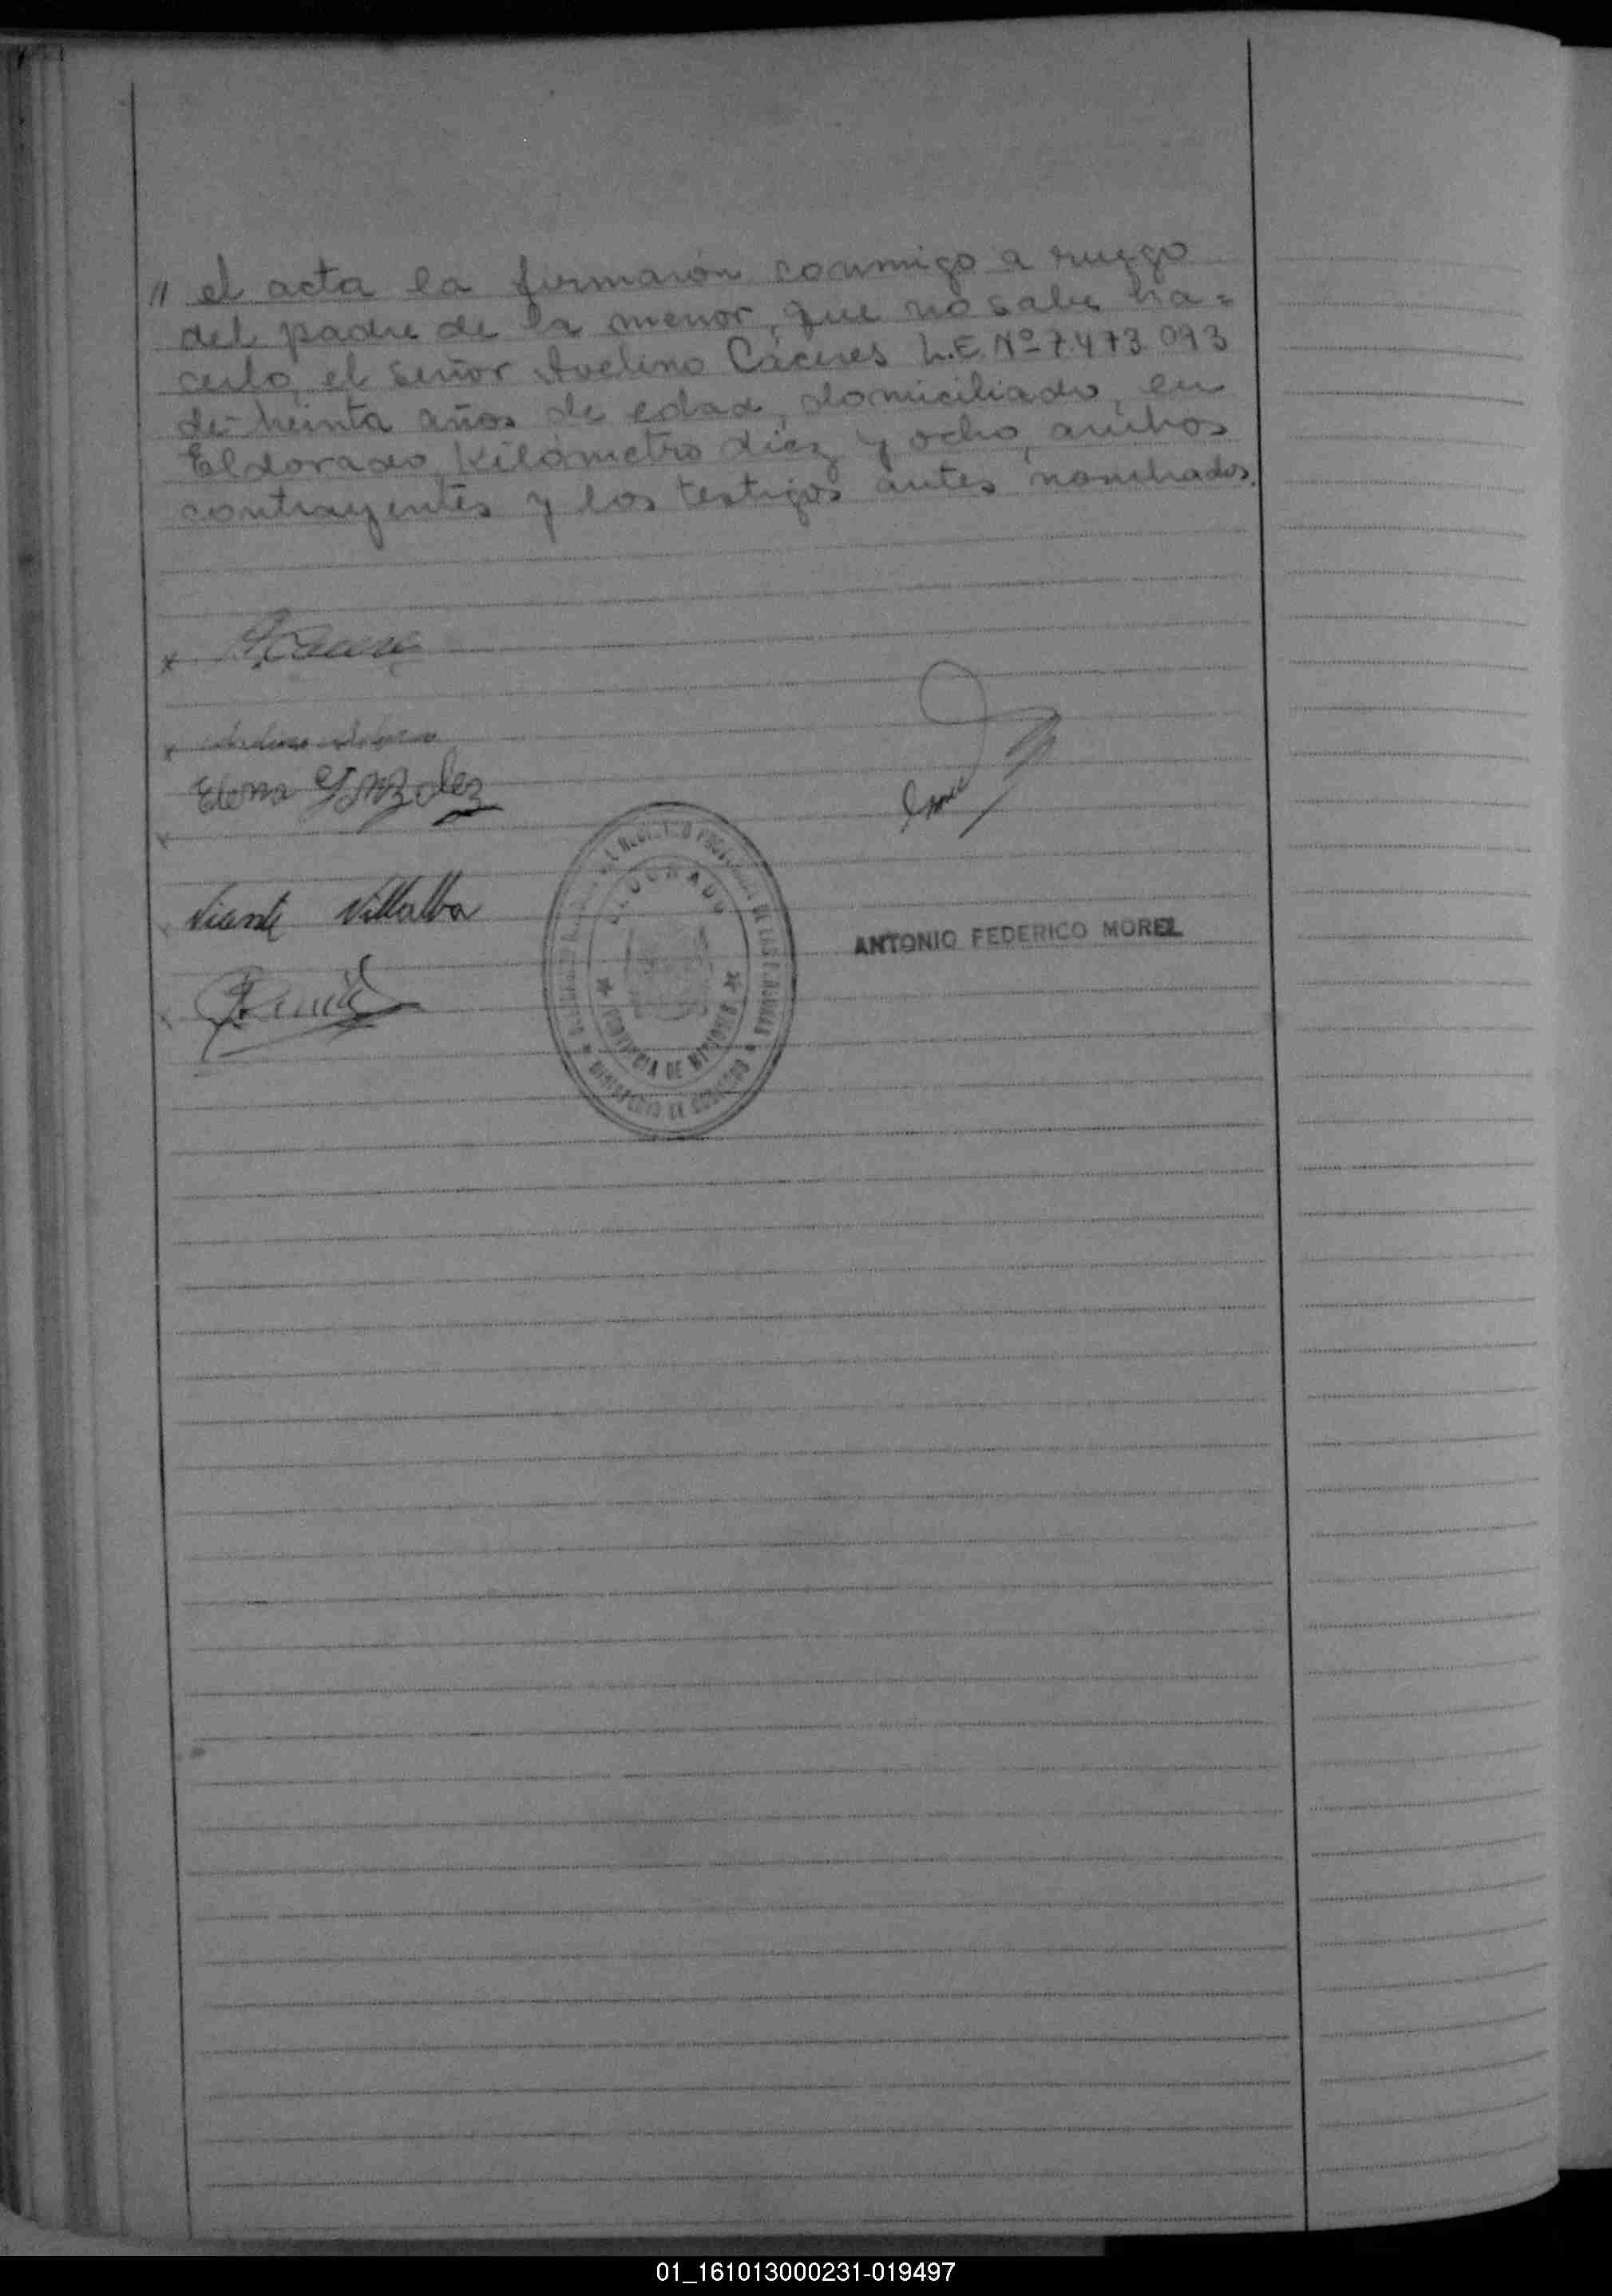 " el acta la firmarón conmigo a ruego
del padre de la menor, que no sabe ha=
cerlo, el señor Avelino Cáceres L.E. Nº 7.473.093
de treinta años de edad, domiciliado, en
Eldorado, Kilómetro diez y ocho, ambos
contrayentes y los testigos antes nombrados.
Elena Gonzalez
Vicente Villalba
ELDORADO
PROVINCIA DE MISIONES
MINISTERIO DE GOBIERNO
REGISTRO PROVINCIAL DE LAS PERSONAS
ANTONIO FEDERICO MOREL
01_161013000231-019497